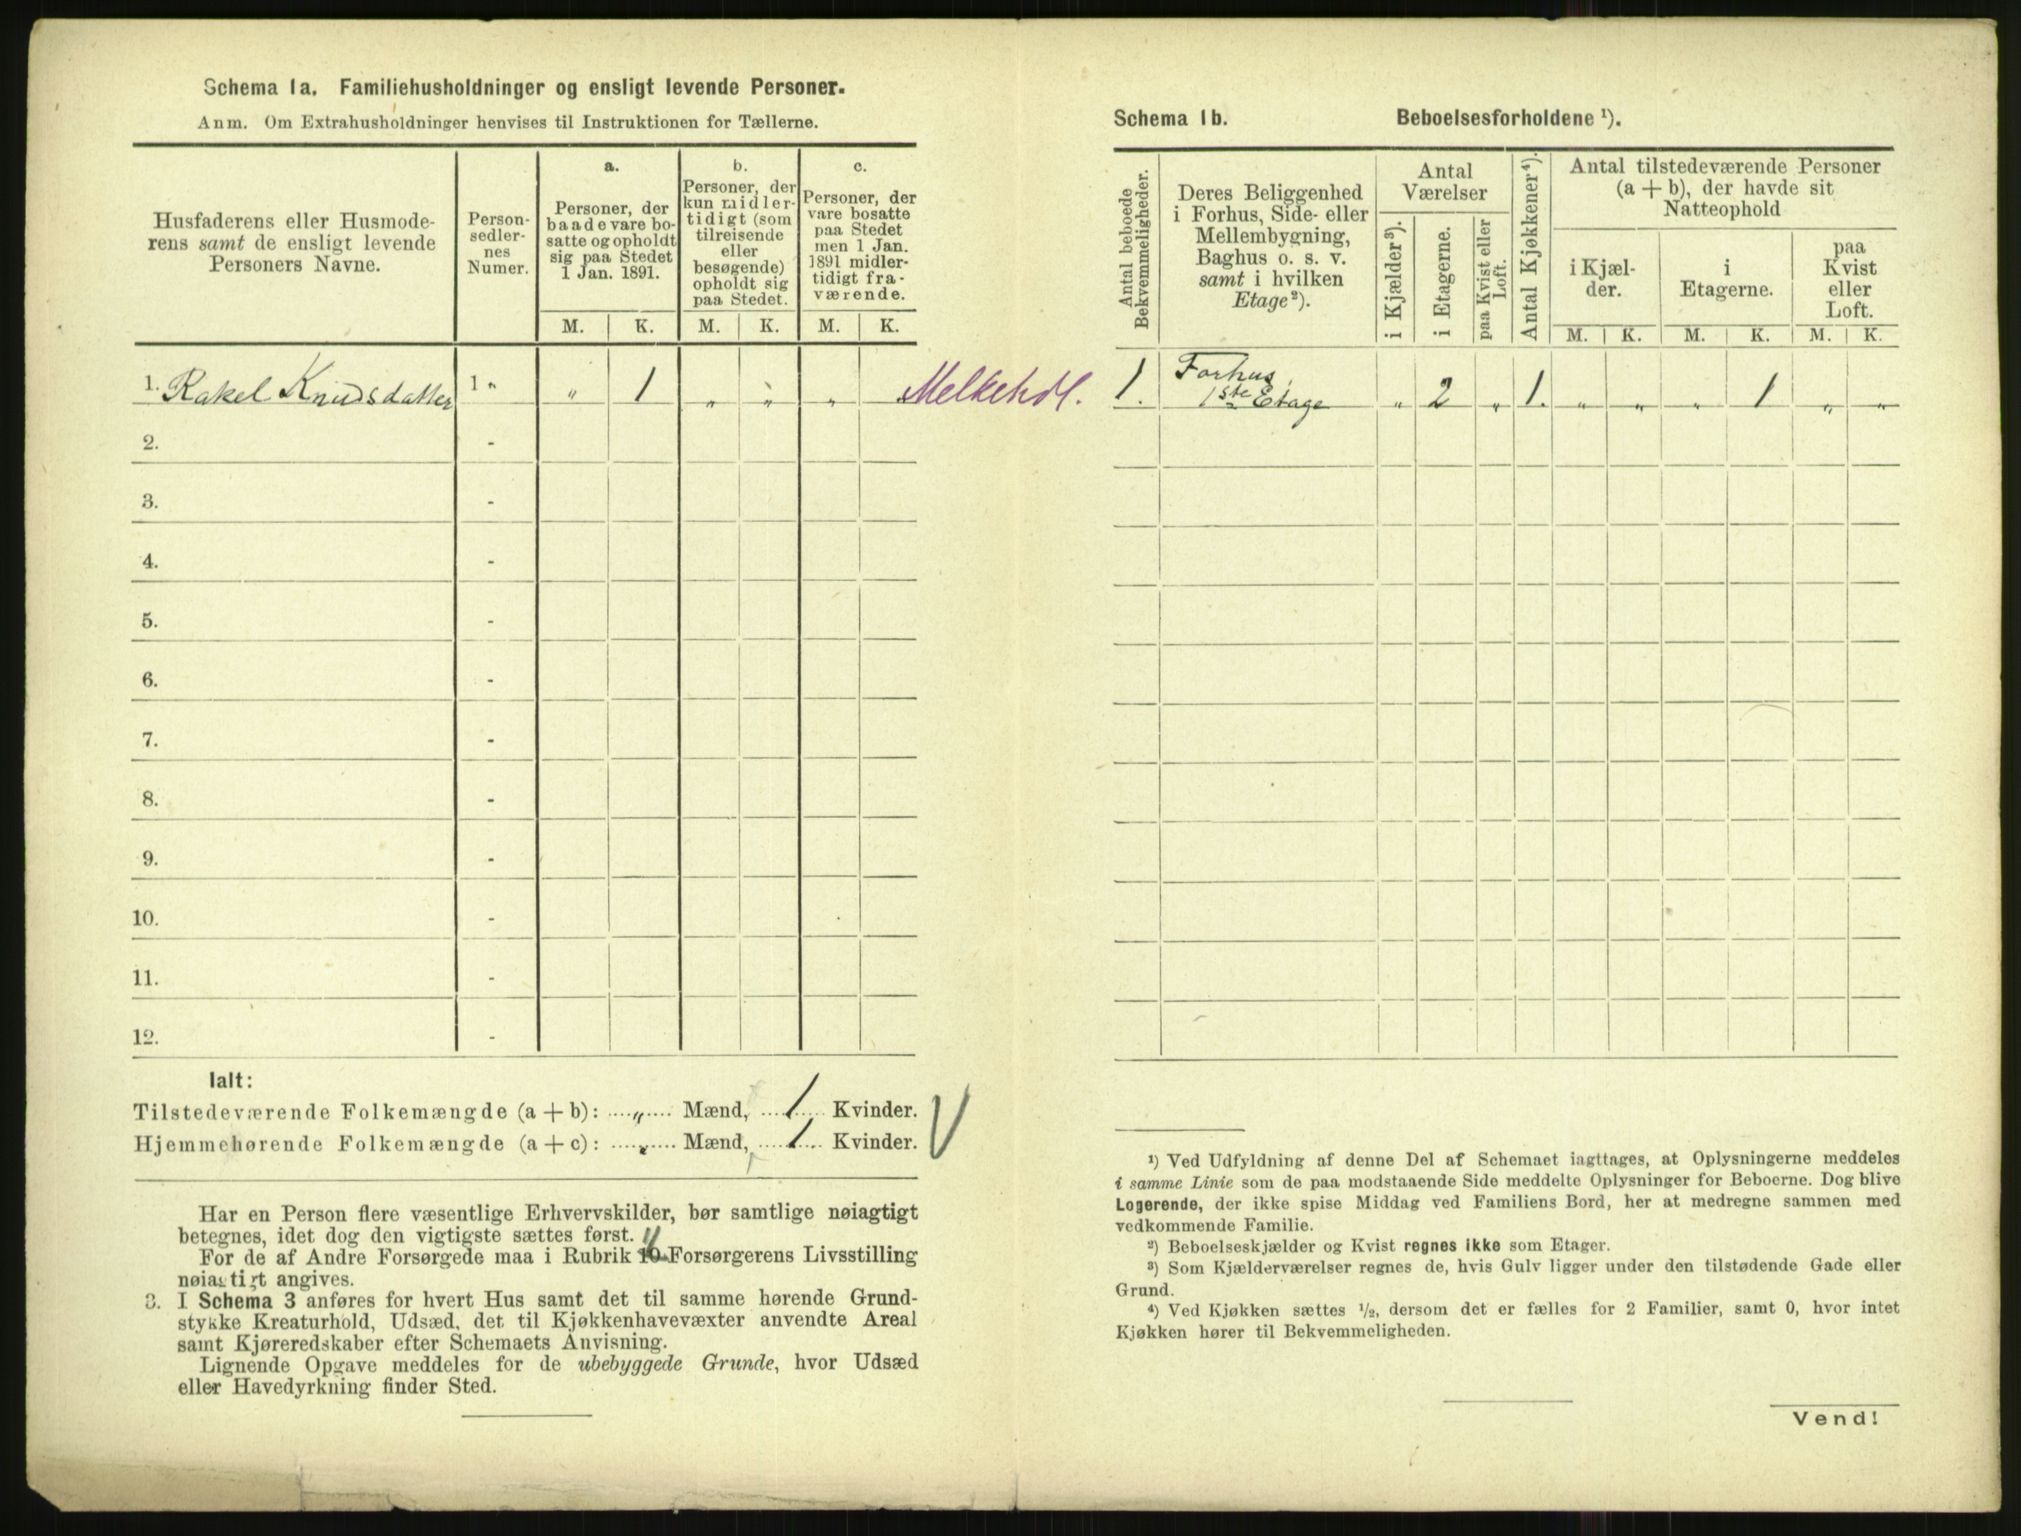 Schema 1a. Familiehusholdninger og ensligt levende Personer.
Anm. Om Extrahusholdninger henvises til Instruktionen for Tællerne.
Husfaderens eller Husmode-
rens samt de ensligt levende
Personers Navne.
Person-
sedler-
nes
Numer.
a.
Personer, der
baade vare bo-
satte og opholdt
sig paa Stedet
1 Jan. 1891.
b.
Personer, der
kun midler-
tidigt (som
tilreisende
eller
besøgende)
opholdt sig
paa Stedet.
c.
Personer, der
vare bosatte
paa Stedet
men 1 Jan.
1891 midler-
tidigt fra-
værende.
M. K. M. K. M. K.
1. Rakel Knudsdatter 1 " " 1 " " " Melkehdl.
2. -
3. -
4. -
5. -
6. -
7. -
8. -
9. -
10. -
11. -
12. -
Ialt:
Tilstedeværende Folkemængde (a + b): " Mænd, 1 Kvinder.
Hjemmehørende Folkemængde (a + c): " Mænd, 1 Kvinder.
Har en Person flere væsentlige Erhvervskilder, bør samtlige nøiagtigt
betegnes, idet dog den vigtigste sættes først.
For de af Andre Forsørgede maa i Rubrik 10 Forsørgerens Livsstilling
nøiagtigt angives.
3. I Schema 3 anføres for hvert Hus samt det til samme hørende Grund-
stykke Kreaturhold, Udsæd, det til Kjøkkenhavevæxter anvendte Areal
samt Kjøreredskaber efter Schemaets Anvisning.
Lignende Opgave meddeles for de ubebyggede Grunde, hvor Udsæd
eller Havedyrkning finder Sted.
Schema 1b. Beboelsesforholdene ¹).
Antal beboede
Bekvemmeligheder.
Deres Beliggenhed
i Forhus, Side- eller
Mellembygning,
Baghus o. s. v.
samt i hvilken
Etage ²).
Antal
Værelser
i Kjælder ³).
i Etagerne.
paa Kvist eller
Loft.
Antal Kjøkkener ⁴).
Antal tilstedeværende Personer
(a + b), der havde sit
Natteophold
i Kjæl-
der.
i
Etagerne.
paa
Kvist
eller
Loft.
M. K. M. K. M. K.
1. Forhus,
1ste Etage " 2 " 1. " " " 1 " "
¹) Ved Udfyldning af denne Del af Schemaet iagttages, at Oplysningerne meddeles
i samme Linie som de paa modstaaende Side meddelte Oplysninger for Beboerne. Dog blive
Logerende, der ikke spise Middag ved Familiens Bord, her at medregne sammen med
vedkommende Familie.
²) Beboelseskjælder og Kvist regnes ikke som Etager.
³) Som Kjælderværelser regnes de, hvis Gulv ligger under den tilstødende Gade eller
Grund.
⁴) Ved Kjøkken sættes ½, dersom det er fælles for 2 Familier, samt 0, hvor intet
Kjøkken hører til Bekvemmeligheden.
Vend!